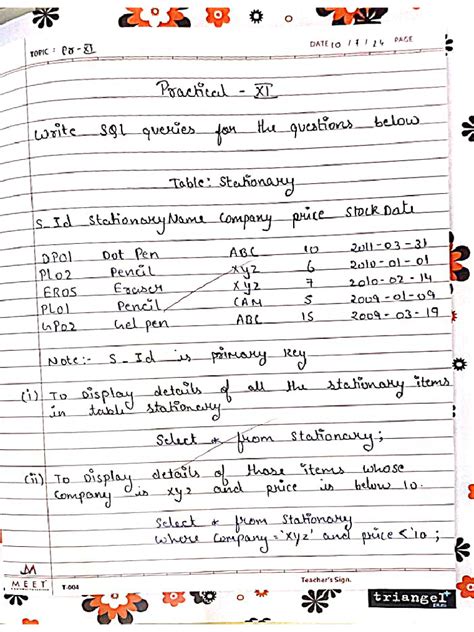 TOPIC : Pr - XI
DATE 10 / 7 / 24 PAGE
Practical - XI
Write SQL queries for the questions below
Table: Stationary
S_Id StationaryName Company price StockDate
DP01 Dot Pen ABC 10 2011-03-31
PL02 Pencil xyz 6 2010-01-01
ER05 Eraser xyz 7 2010-02-14
PL01 Pencil CAM 5 2009-01-09
GP02 Gel pen ABC 15 2009-03-19
Note:- S_Id is primary key
(i) To Display details of all the stationary items
in table stationary
Select * from Stationary;
(ii) To Display details of those items whose
Company is xyz and price is below 10.
Select * from Stationary
where Company = 'xyz' and price < 10 ;
MEET T-004 Teacher's Sign. triangel